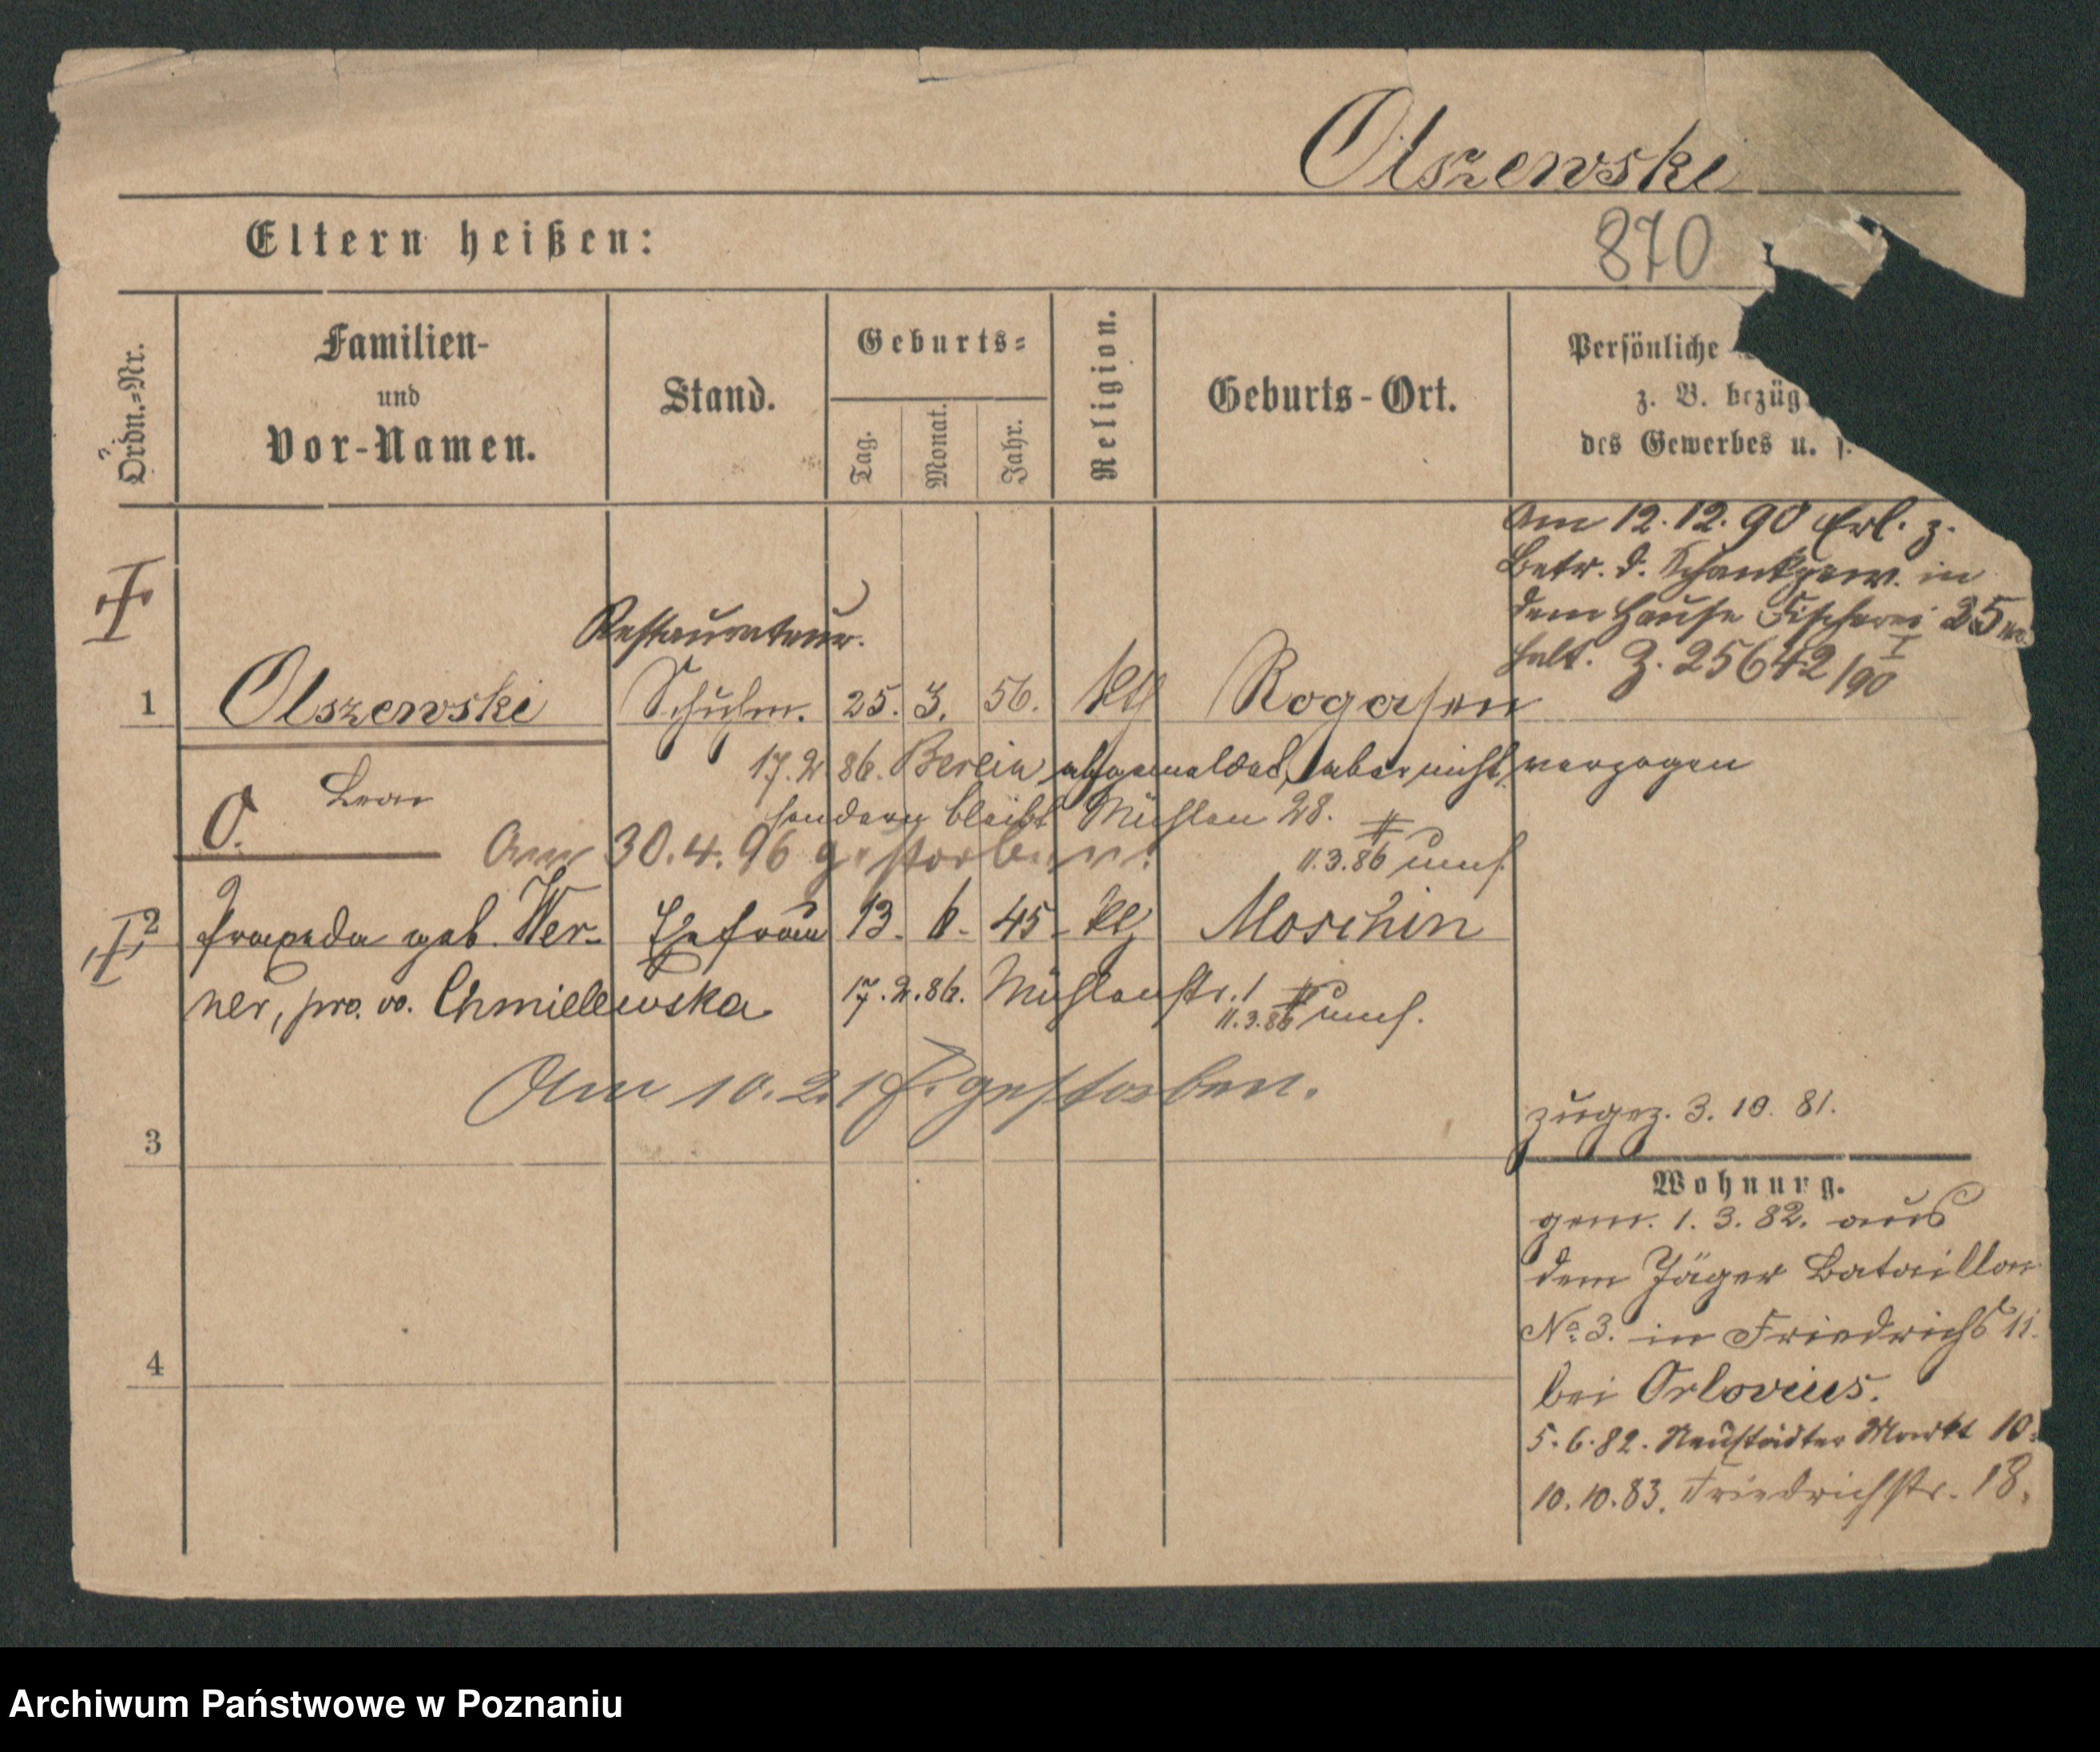 Olszewski
870
Eltern heißen:
Ordn.-Nr.
Familien-
und
Vor-Namen.
Stand.
Geburts-
Tag.
Monat.
Jahr.
Religion.
Geburts-Ort.
Persönliche
z. B. bezüg
des Gewerbes u. s.
Am 12.12.90 Erl. z.
Betr. d. Schankgew. in
dem Hause Fischerei 25
halt. Z. 25642/90 I
Restaurateur.
1 Olszewski Schuhm. 25. 3. 56. kth Rogasen
17.2.86. Berlin abgemeldet, aber nicht verzogen
Leon
sondern bleibt Mühlen 28.
O.
Am 30.4.96 gestorben.
11.3.86
2 Praxeda geb. Wer- Ehefrau 13. 6. 45. Moschin
ner, pr. vo. Chmielewska 17.2.86. Mühlenstr. 1
11.3.86
Am 10.2.17. gestorben.
zugez. 3. 10. 81.
3
Wohnung.
gem. 1. 3. 82. aus
dem Jäger Bataillon
No. 3. in Friedrichs 11.
4
bei Orlovius.
5.6.82. Neustädter Markt 10.
10.10.83. Friedrichstr. 18.
Archiwum Państwowe w Poznaniu